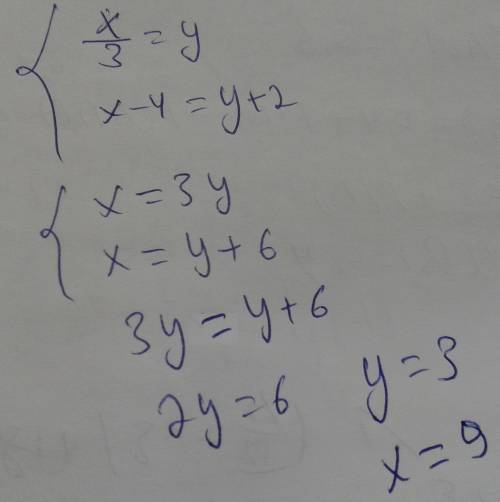 x/3 = y
x - 4 = y + 2
x = 3y
x = y + 6
3y = y + 6
2y = 6
y = 3
x = 9